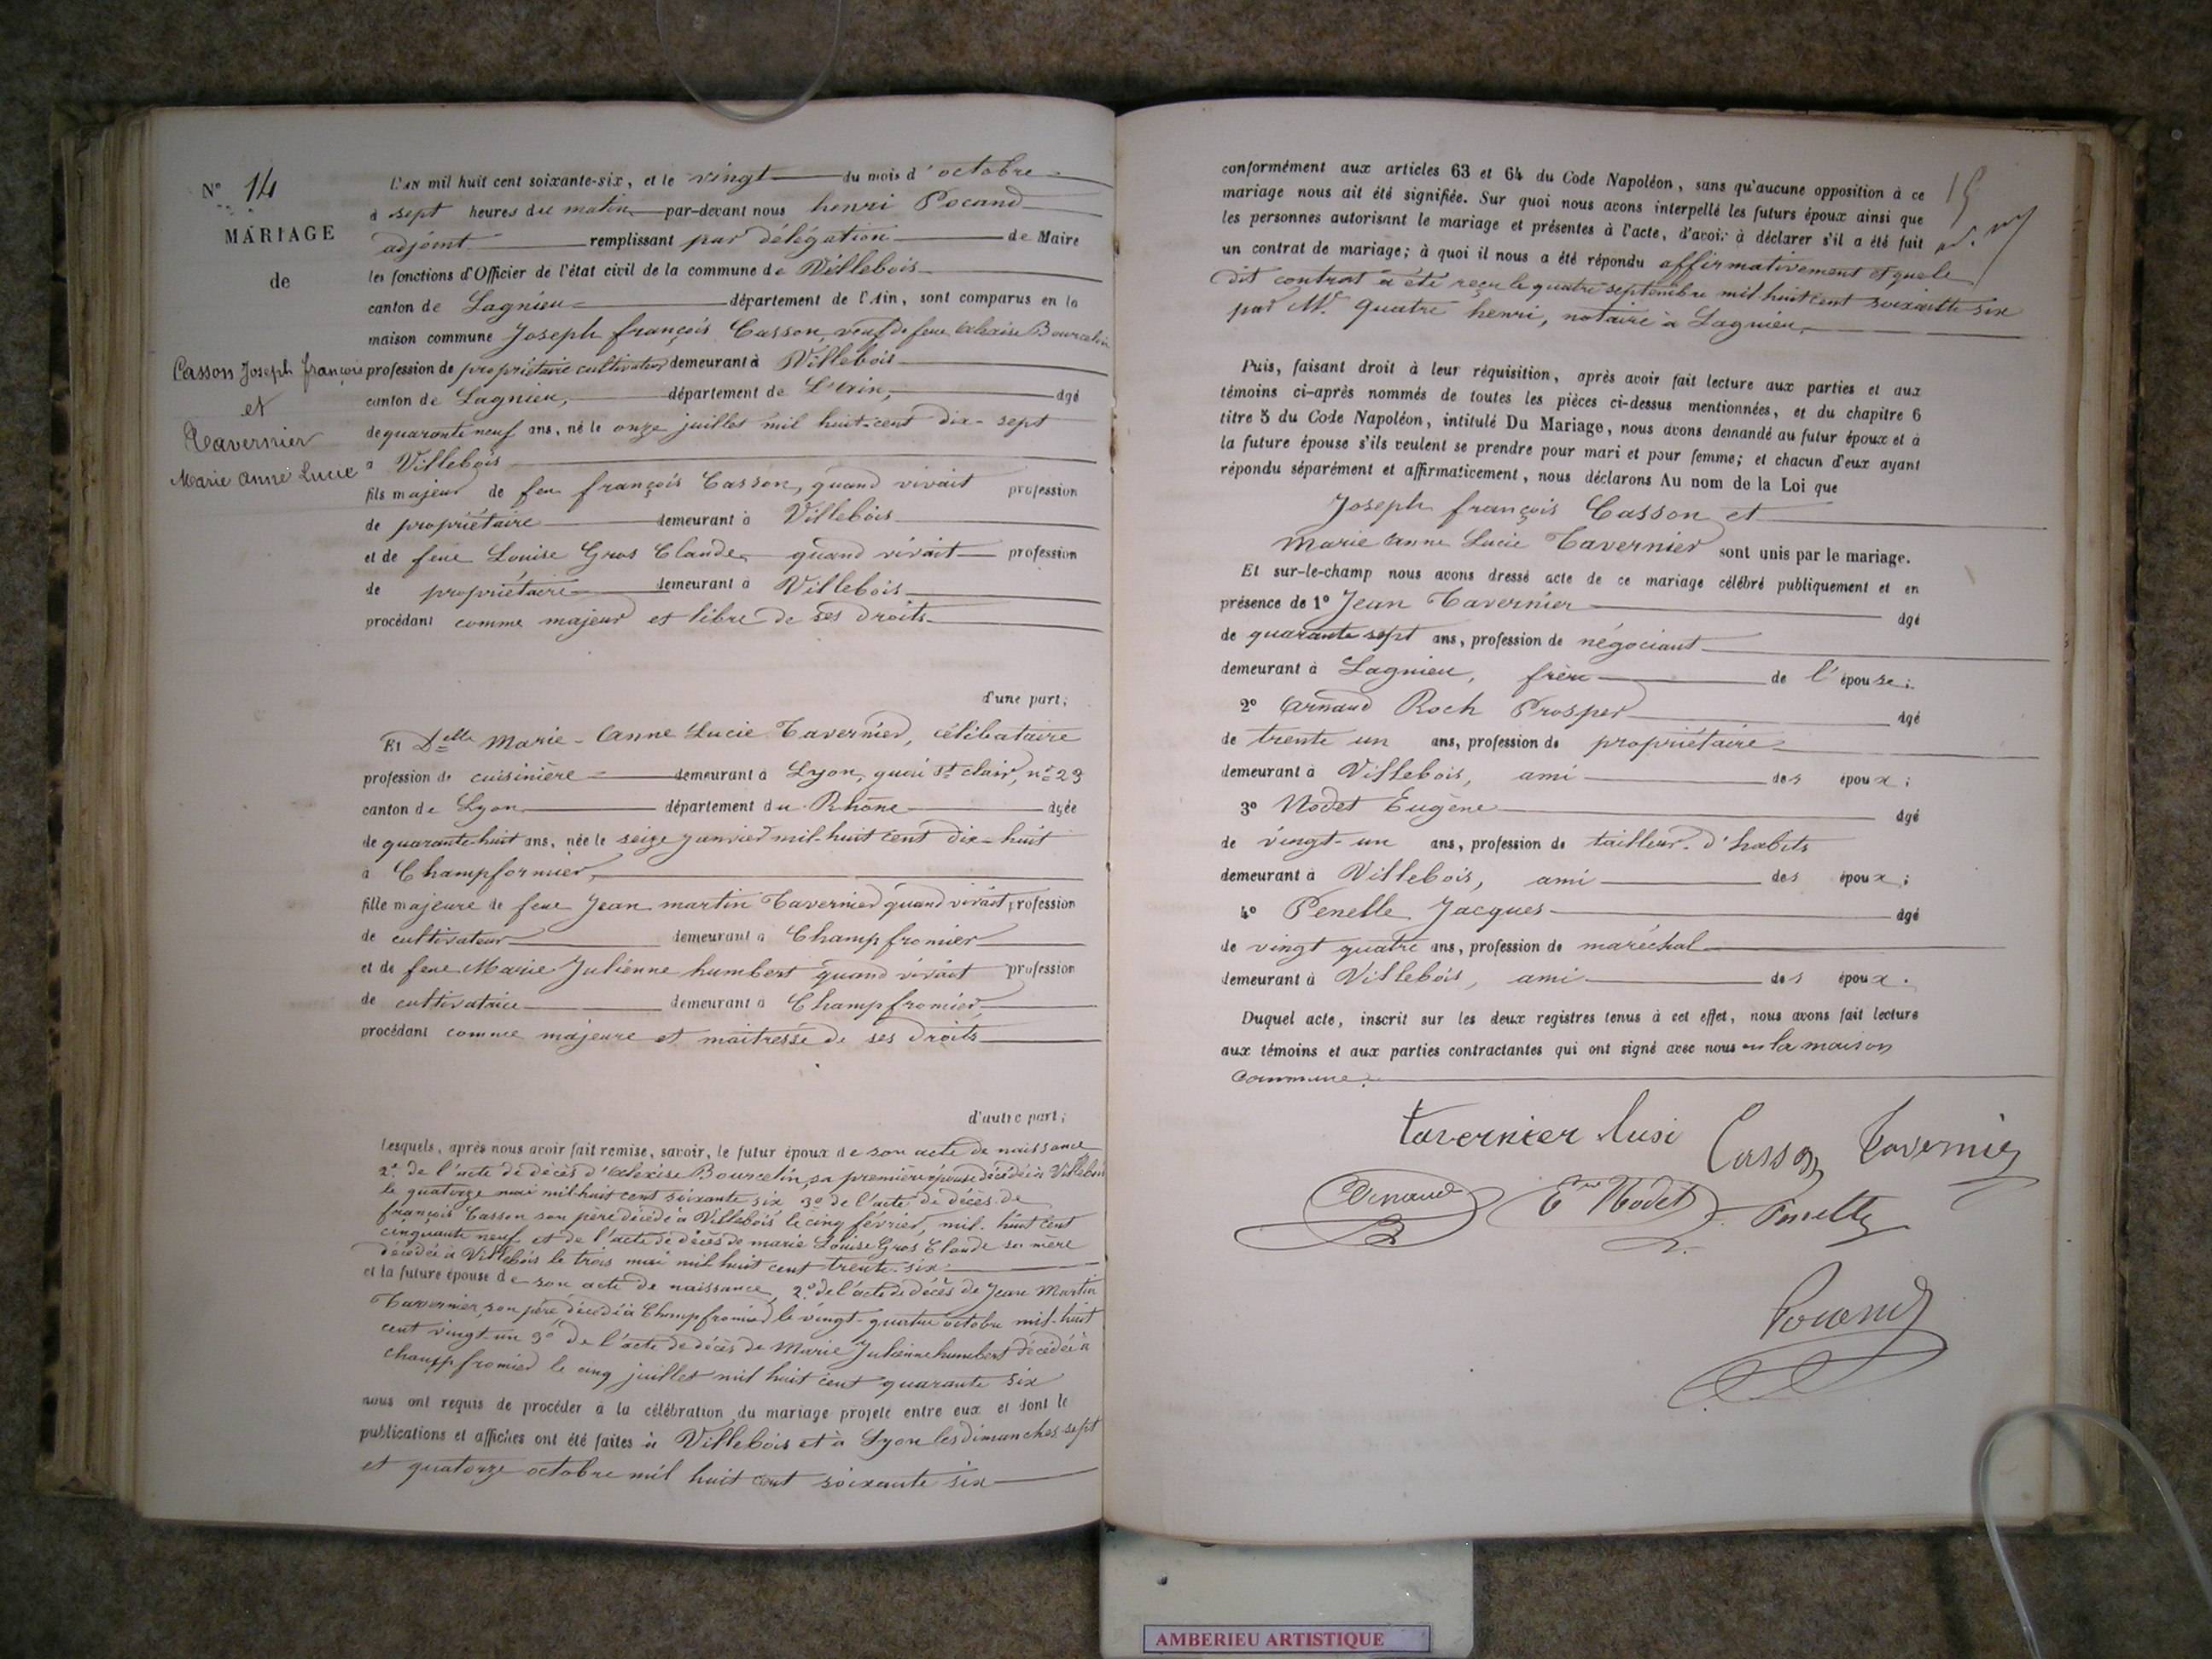 N° 14
MARIAGE
de
Casson Joseph françois
et
Tavernier
Marie Anne Lucie
L'AN mil huit cent soixante-six, et le vingt du mois d'octobre
à sept heures du matin par-devant nous henri Pocand
adjoint remplissant par délégation de Maire
les fonctions d'Officier de l'état civil de la commune de Villebois
canton de Lagnieu département de l'Ain, sont comparus en la
maison commune Joseph françois Casson, veuf de feue Alexise Bourcelin
profession de propriétaire cultivateur demeurant à Villebois
canton de Lagnieu, département de L'Ain, âgé
de quarante neuf ans, né le onze juillet mil huit-cent dix-sept
à Villebois
fils majeur de feu françois Casson, quand vivait profession
de propriétaire demeurant à Villebois
et de feue Louise Gros Claude, quand vivait profession
de propriétaire demeurant à Villebois
procédant comme majeur et libre de ses droits
d'une part;
Et Delle Marie-Anne Lucie Tavernier, célibataire
profession de cuisinière demeurant à Lyon, quai St clair, n° 23
canton de Lyon département du Rhône âgée
de quarante-huit ans, née le seize janvier mil-huit cent dix-huit
à Champformier,
fille majeure de feue Jean martin Tavernier quand vivait profession
de cultivateur demeurant à Champfromier
et de feue Marie Julienne humbert quand vivait profession
de cultivatrice demeurant à Champfromier,
procédant comme majeure et maitresse de ses droits
d'autre part;
Lesquels, après nous avoir fait remise, savoir, le futur époux de son acte de naissance
2° de l'acte de décès d'Alexise Bourcelin, sa première épouse décédée à Villebois
le quatorze mai mil-huit cent soixante six 3° de l'acte de décès de
françois Casson son père décédé à Villebois le cinq février, mil-huit cent
cinquante neuf et de l'acte de décès de marie Louise Gros Claude sa mère
décédée à Villebois le trois mai mil huit cent trente-six
et la future épouse de son acte de naissance, 2° de l'acte de décès de Jean Martin
Tavernier, son père décédé à Champfromier le vingt-quatre octobre mil-huit
cent vingt-un 3° de l'acte de décès de Marie Julienne humbert décédée à
champfromier le cinq juillet mil huit cent quarante six
nous ont requis de procéder à la célébration du mariage projeté entre eux et dont le
publications et affiches ont été faites à Villebois et à Lyon les dimanches sept
et quatorze octobre mil huit cent soixante six
conformément aux articles 63 et 64 du Code Napoléon, sans qu'aucune opposition à ce
mariage nous ait été signifiée. Sur quoi nous avons interpellé les futurs époux ainsi que
les personnes autorisant le mariage et présentes à l'acte, d'avoir à déclarer s'il a été fait
un contrat de mariage; à quoi il nous a été répondu affirmativement et que le
dit contrat a été reçu le quatre septembre mil huit cent soixante six
par Mr. Quatre henri, notaire à Lagnieu
15
Puis, faisant droit à leur réquisition, après avoir fait lecture aux parties et aux
témoins ci-après nommés de toutes les pièces ci-dessus mentionnées, et du chapitre 6
titre 5 du Code Napoléon, intitulé Du Mariage, nous avons demandé au futur époux et à
la future épouse s'ils veulent se prendre pour mari et pour femme; et chacun d'eux ayant
répondu séparément et affirmativement, nous déclarons Au nom de la Loi que
Joseph françois Casson et
Marie Anne Lucie Tavernier sont unis par le mariage.
Et sur-le-champ nous avons dressé acte de ce mariage célébré publiquement et en
présence de 1° Jean Tavernier âgé
de quarante sept ans, profession de négociant
demeurant à Lagnieu, frère de l'épouse;
2° Arnaud Roch Prosper âgé
de trente un ans, profession de propriétaire
demeurant à Villebois, ami des époux;
3° Nodet Eugène âgé
de vingt-un ans, profession de tailleur d'habits
demeurant à Villebois, ami des époux;
4° Penelle Jacques âgé
de vingt quatre ans, profession de maréchal
demeurant à Villebois, ami des époux.
Duquel acte, inscrit sur les deux registres tenus à cet effet, nous avons fait lecture
aux témoins et aux parties contractantes qui ont signé avec nous en la maison
commune.
tavernier lusi Casson Tavernier
Arnaud Ene Nodet Penelle
Pocand
AMBERIEU ARTISTIQUE